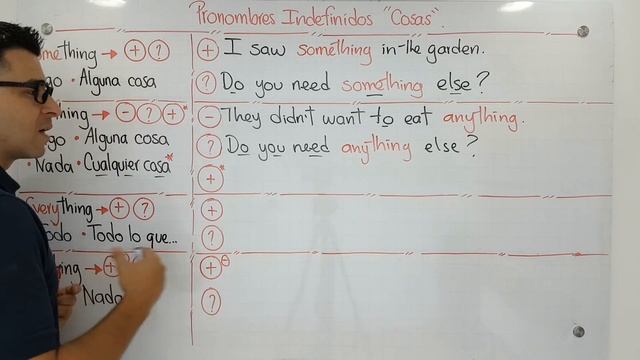 Pronombres Indefinidos "Cosas".
mething → (+) (?)
go • Alguna cosa
(+) I saw something in the garden.
(?) Do you need something else?
hing → (-) (?) (+)*
go • Alguna cosa
• Nada • Cualquier cosa*
(-) They didn't want to eat anything.
(?) Do you need anything else?
(+)*
Everything → (+) (?)
odo • Todo lo que...
(+)
(?)
ing → (+)
Nada
(+)⊖
(?)